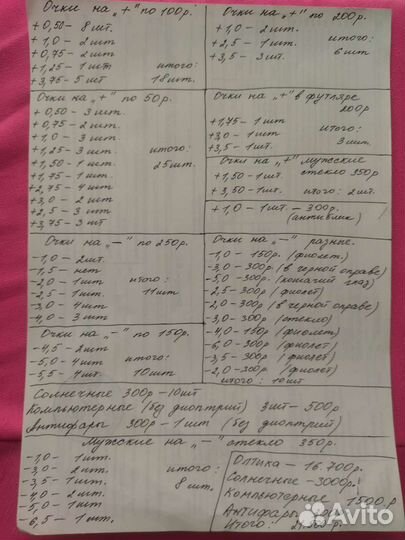 Очки на „+" по 100р.
+0,50 – 8 шт.
+1,0 – 2 шт
+0,75 – 2 шт
+1,25 – 1 шт итого:
+3,75 – 5 шт 18 шт.
Очки на „+" по 200р.
+1,0 – 2 шт.
+2,5 – 1 шт. итого:
+3,5 – 3 шт. 6 шт
Очки на „+" по 50р.
+0,50 – 3 шт
+0,75 – 2 шт
+1,0 – 3 шт.
+1,25 – 3 шт итого:
+1,50 – 1 шт. 25 шт.
+1,75 – 1 шт
+2,75 – 4 шт
+3,0 – 2 шт
+2,5 – 3 шт
+3,75 – 3 шт
Очки на „+" в футляре
200р
+1,75 – 1 шт
+3,0 – 1 шт. итого:
+3,5 – 1 шт. 3 шт.
Очки на „+" мужские
+1,50 – 1 шт. стекло 350р
+3,50 – 1 шт. итого: 2 шт.
+1,0 – 1 шт – 300р.
(антиблик)
Очки на „–" по 250р.
-1,0 – 2 шт.
-1,5 – нет
-2,0 – 1 шт итого:
-2,5 – 1 шт. 11 шт
-3,0 – 4 шт
-4,0 – 3 шт
Очки на „–" разные.
-1,0 – 150р. (фиолет)
-3,0 – 300р (в черной оправе)
-5,0 – 300р (кошачий глаз)
-2,5 – 300р (фиолет)
-2,0 – 300р (в черной оправе)
-3,0 – 300р (стекло)
-4,0 – 150р (фиолет)
-6,0 – 300р (фиолет)
-3,5 – 300р (фиолет)
-2,0 – 300р (фиолет)
итого: 10 шт
Очки на „–" по 150р.
-4,5 – 2 шт
-5,0 – 4 шт итого:
-5,5 – 4 шт 10 шт
Солнечные 300р – 10 шт
Компьютерные (без диоптрий) 3 шт – 500р
Антифары 300р – 1 шт (без диоптрий)
Мужские на „–" стекло 350р.
-1,0 – 1 шт.
-3,0 – 2 шт. итого:
-3,5 – 1 шт. 8 шт.
-4,0 – 2 шт.
-5,0 – 1 шт.
6,5 – 1 шт.
Оптика – 16.700р.
Солнечные – 3000р.
Компьютерные 1500р
Антифары
Итого:
Avito